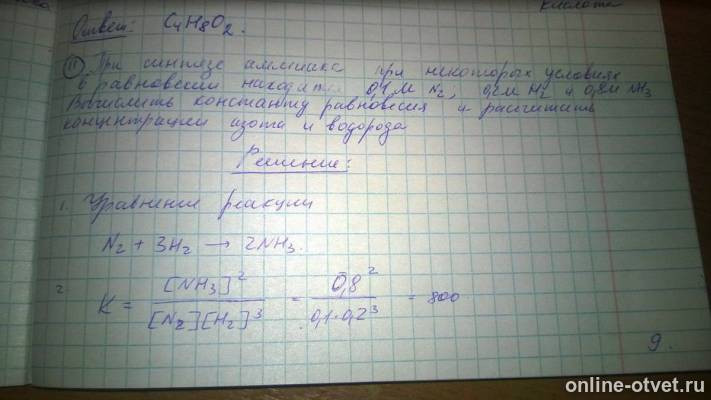 кислота
Ответ: C4H8O2.
11 При синтезе аммиака при некоторых условиях
в равновесии находится 0,1М N2, 0,2М H2 и 0,8М NH3
Вычислить константу равновесия и рассчитать
концентрации азота и водорода
Решение:
1. Уравнение реакции
N2 + 3H2 → 2NH3.
2. K = [NH3]² / [N2][H2]³ = 0,8² / 0,1·0,2³ = 800
9.
online-otvet.ru